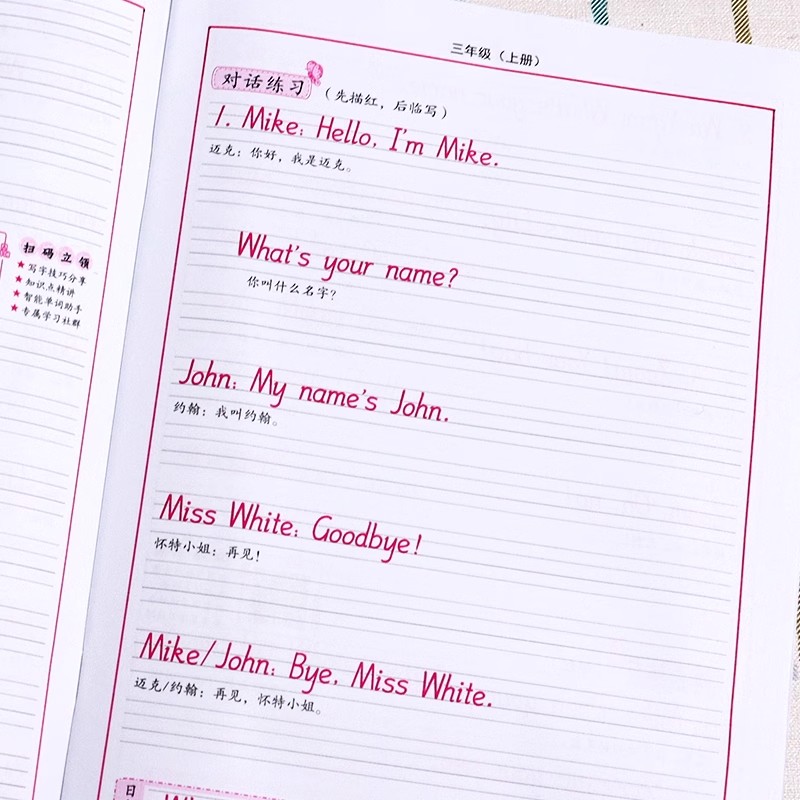 扫码立领
★ 写字技巧分享
★ 知识点精讲
★ 智能单词助手
★ 专属学习社群
三年级（上册）
对话练习（先描红，后临写）
1. Mike: Hello, I'm Mike.
迈克：你好，我是迈克。
What's your name?
你叫什么名字？
John: My name's John.
约翰：我叫约翰。
Miss White: Goodbye!
怀特小姐：再见！
Mike/John: Bye, Miss White.
迈克/约翰：再见，怀特小姐。
日